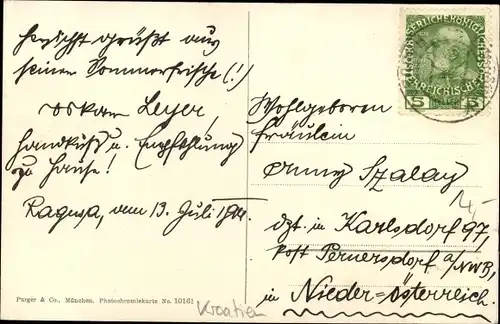 herzlichst grüßt aus
seiner Sommerfrische (!)
Oskar Leyer,
Handkuß u. Empfehlung
zu Hause!
Ragusa, am 13. Juli 1911.
Wohlgeboren
Fräulein
Anny Szalay
dzt. in Karlsdorf 97,
Post Pernersdorf a/NWB,
in Nieder-Österreich.
Purger & Co., München, Photochromiekarte No. 10161
Kroatien
5 HELLER 5